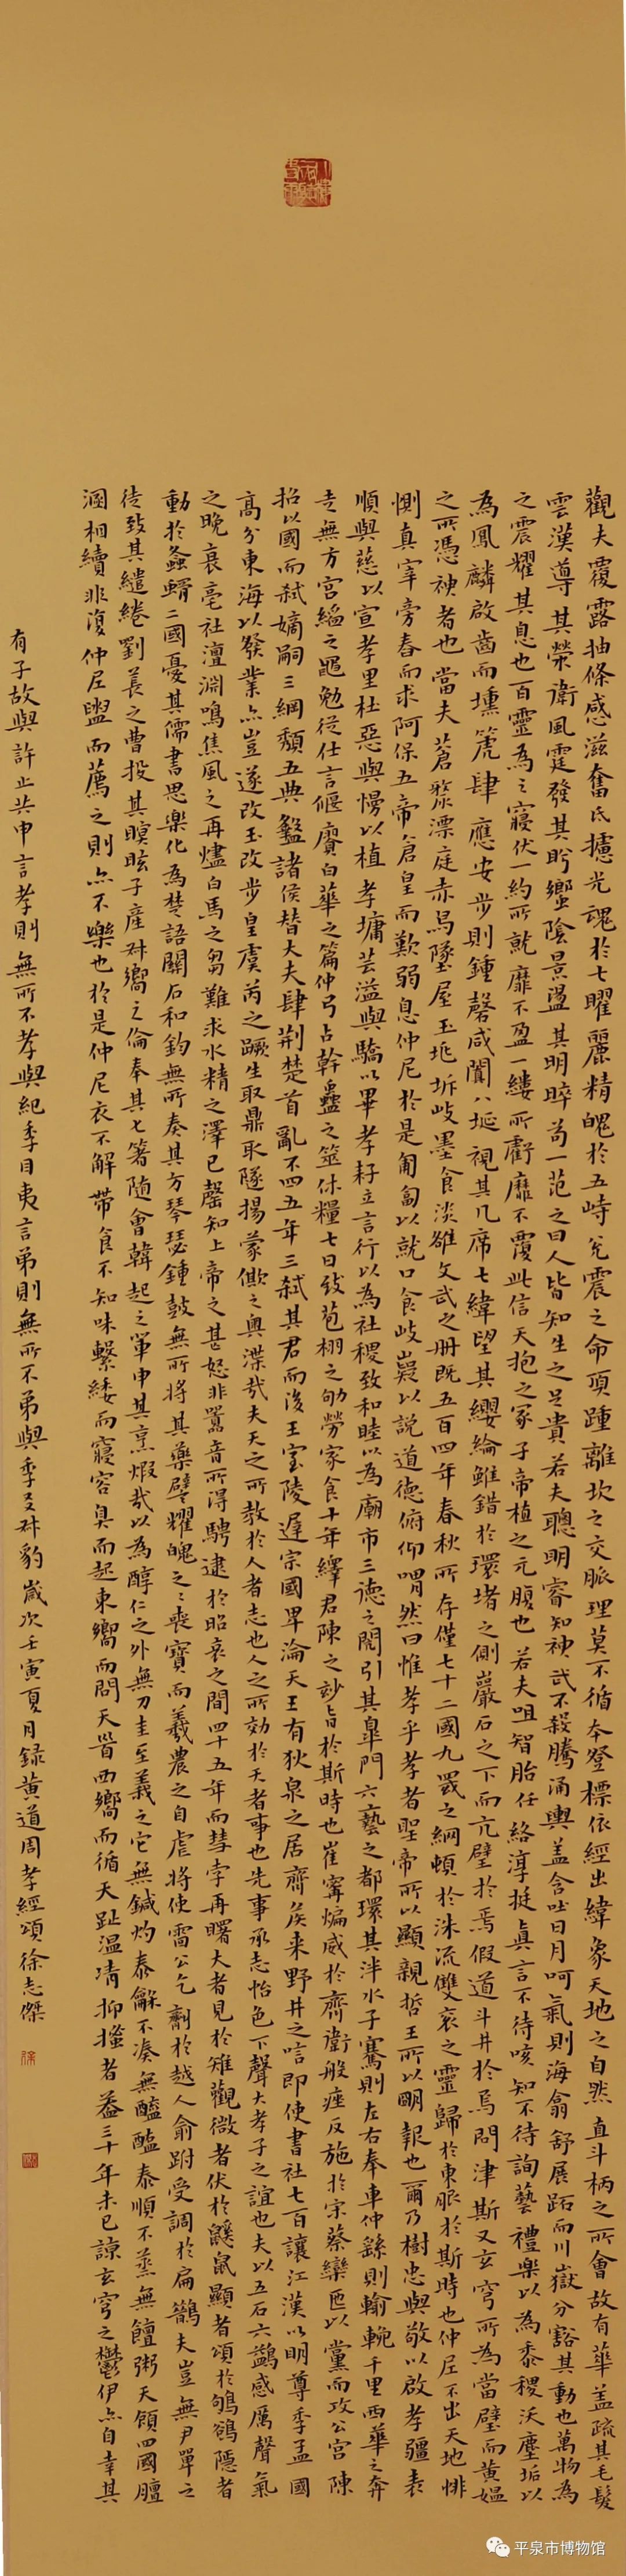 觀夫覆露抽條感滋奮氏攄光魂於七曜麗精魄於五峙兊震之命頂踵離坎之交脈理莫不循本發標依經出緯象天地之自然直斗柄之所會故有華蓋疏其毛髮
雲漢導其榮衛風霆發其肸蠁陰景盪其明晬苟一范之曰人皆知生之足貴若夫聰明睿知神武不殺騰涌輿蓋含吐日月呵氣則海翕舒展跖而川嶽分豁其動也萬物為
之震耀其息也百靈為之寢伏一約所就靡不盈一縷所虧靡不覆此信天抱之冢子帝植之元腹也若夫咀智胎任絡淳挺真言不待咳知不待詢藝禮樂以為黍稷沃塵垢以
為鳳麟啟齒而壎箎肆應安步則鍾磬咸闐八埏視其几席七緯望其纓綸雖錯於環堵之側巖石之下而亢璧於焉假道斗井於焉問津斯又玄穹所為當璧而黃媼
之所憑神者也當夫蒼漦漂庭赤舄墜屋玉兆坼岐墨食淡雒文武之冊既五百四年春秋所存僅七十二國九罭之綱頓於洙流雙袞之靈歸於東服於斯時也仲尼不出天地悱
惻真宰旁舂而求阿保五帝倉皇而歎弱息仲尼於是匍匐以就口食岐嶷以說道德俯仰喟然曰惟孝乎孝者聖帝所以顯親哲王所以明報也爾乃樹忠與敬以啟孝疆表
順與慈以宣孝里杜惡與慢以植孝墉芸溢與驕以畢孝耔立言行以為社稷致和睦以為廟市三德之閎引其皐門六藝之都環其泮水子騫則左右奉車仲繇則輸輓千里西華之奔
走無方宮縚之黽勉從仕言偃賡白華之篇仲弓占幹蠱之筮休糧七日致苞栩之劬勞家食十年繹君陳之妙旨於斯時也崔甯煽威於齊衛般痤反施於宋蔡欒匜以黨而攻公宮陳
招以國而弒嫡嗣三綱頹五典盭諸侯替大夫肆荆楚首亂不四五年三弒其君而後王室陵遲宗國卑淪天王有狄泉之居齊侯来野井之唁即使書社七百讓江漢以明尊季孟國
高分東海以發業亦豈遂改玉改步皇虞芮之蹶生取鼎取隧揚蒙僛之輿渫哉夫天之所教於人者志也人之所効於天者事也先事承志怡色下聲大孝子之誼也夫以五石六鷁感厲聲氣
之晚衰亳社澶淵鳴焦風之再燼白馬之芻難求水精之澤已罄知上帝之甚怒非鷖音所得騁逮於昭哀之間四十五年而彗孛再曙大者見於雉觀微者伏於鼷鼠顯者頌於鴝鵒隱者
動於螽蝑二國憂其儒書思樂化為楚語關石和鈞無所奏其方琴瑟鍾鼓無所將其藥譬耀魄之之喪寶而羲農之自虐將使雷公乞劑於越人俞跗受調於扁鵲夫豈無尹單之
徒致其繾綣劉萇之曹投其瞑眩子產叔嚮之倫奉其匕箸隨會韓起之單申其烹煆哉以為醇仁之外無刀圭至義之它無鍼灼泰龢不湊無醯醢泰順不蒸無饘粥天領四國膻
溷相續非復仲尼盥而薦之則亦不樂也於是仲尼衣不解帶食不知味繫緌而寢容臭而起東嚮而問天眥西嚮而循天趾溫凊抑搔者葢三十年未已諒玄穹之鬱伊亦自幸其
有子故與許止共申言孝則無所不孝與紀季目夷言弟則無所不弟與季友叔豹歲次壬寅夏月録黃道周孝經頌徐志傑
平泉市博物馆